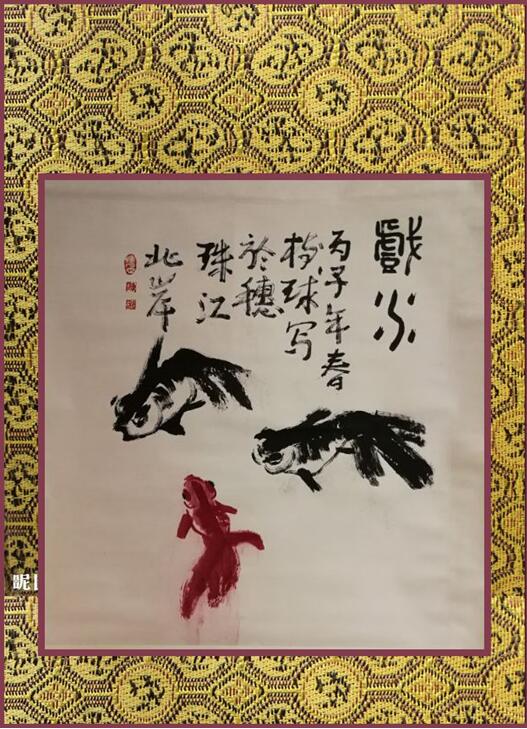 戲水
丙子年春
梅球写
於穗
珠江
北岸
昵